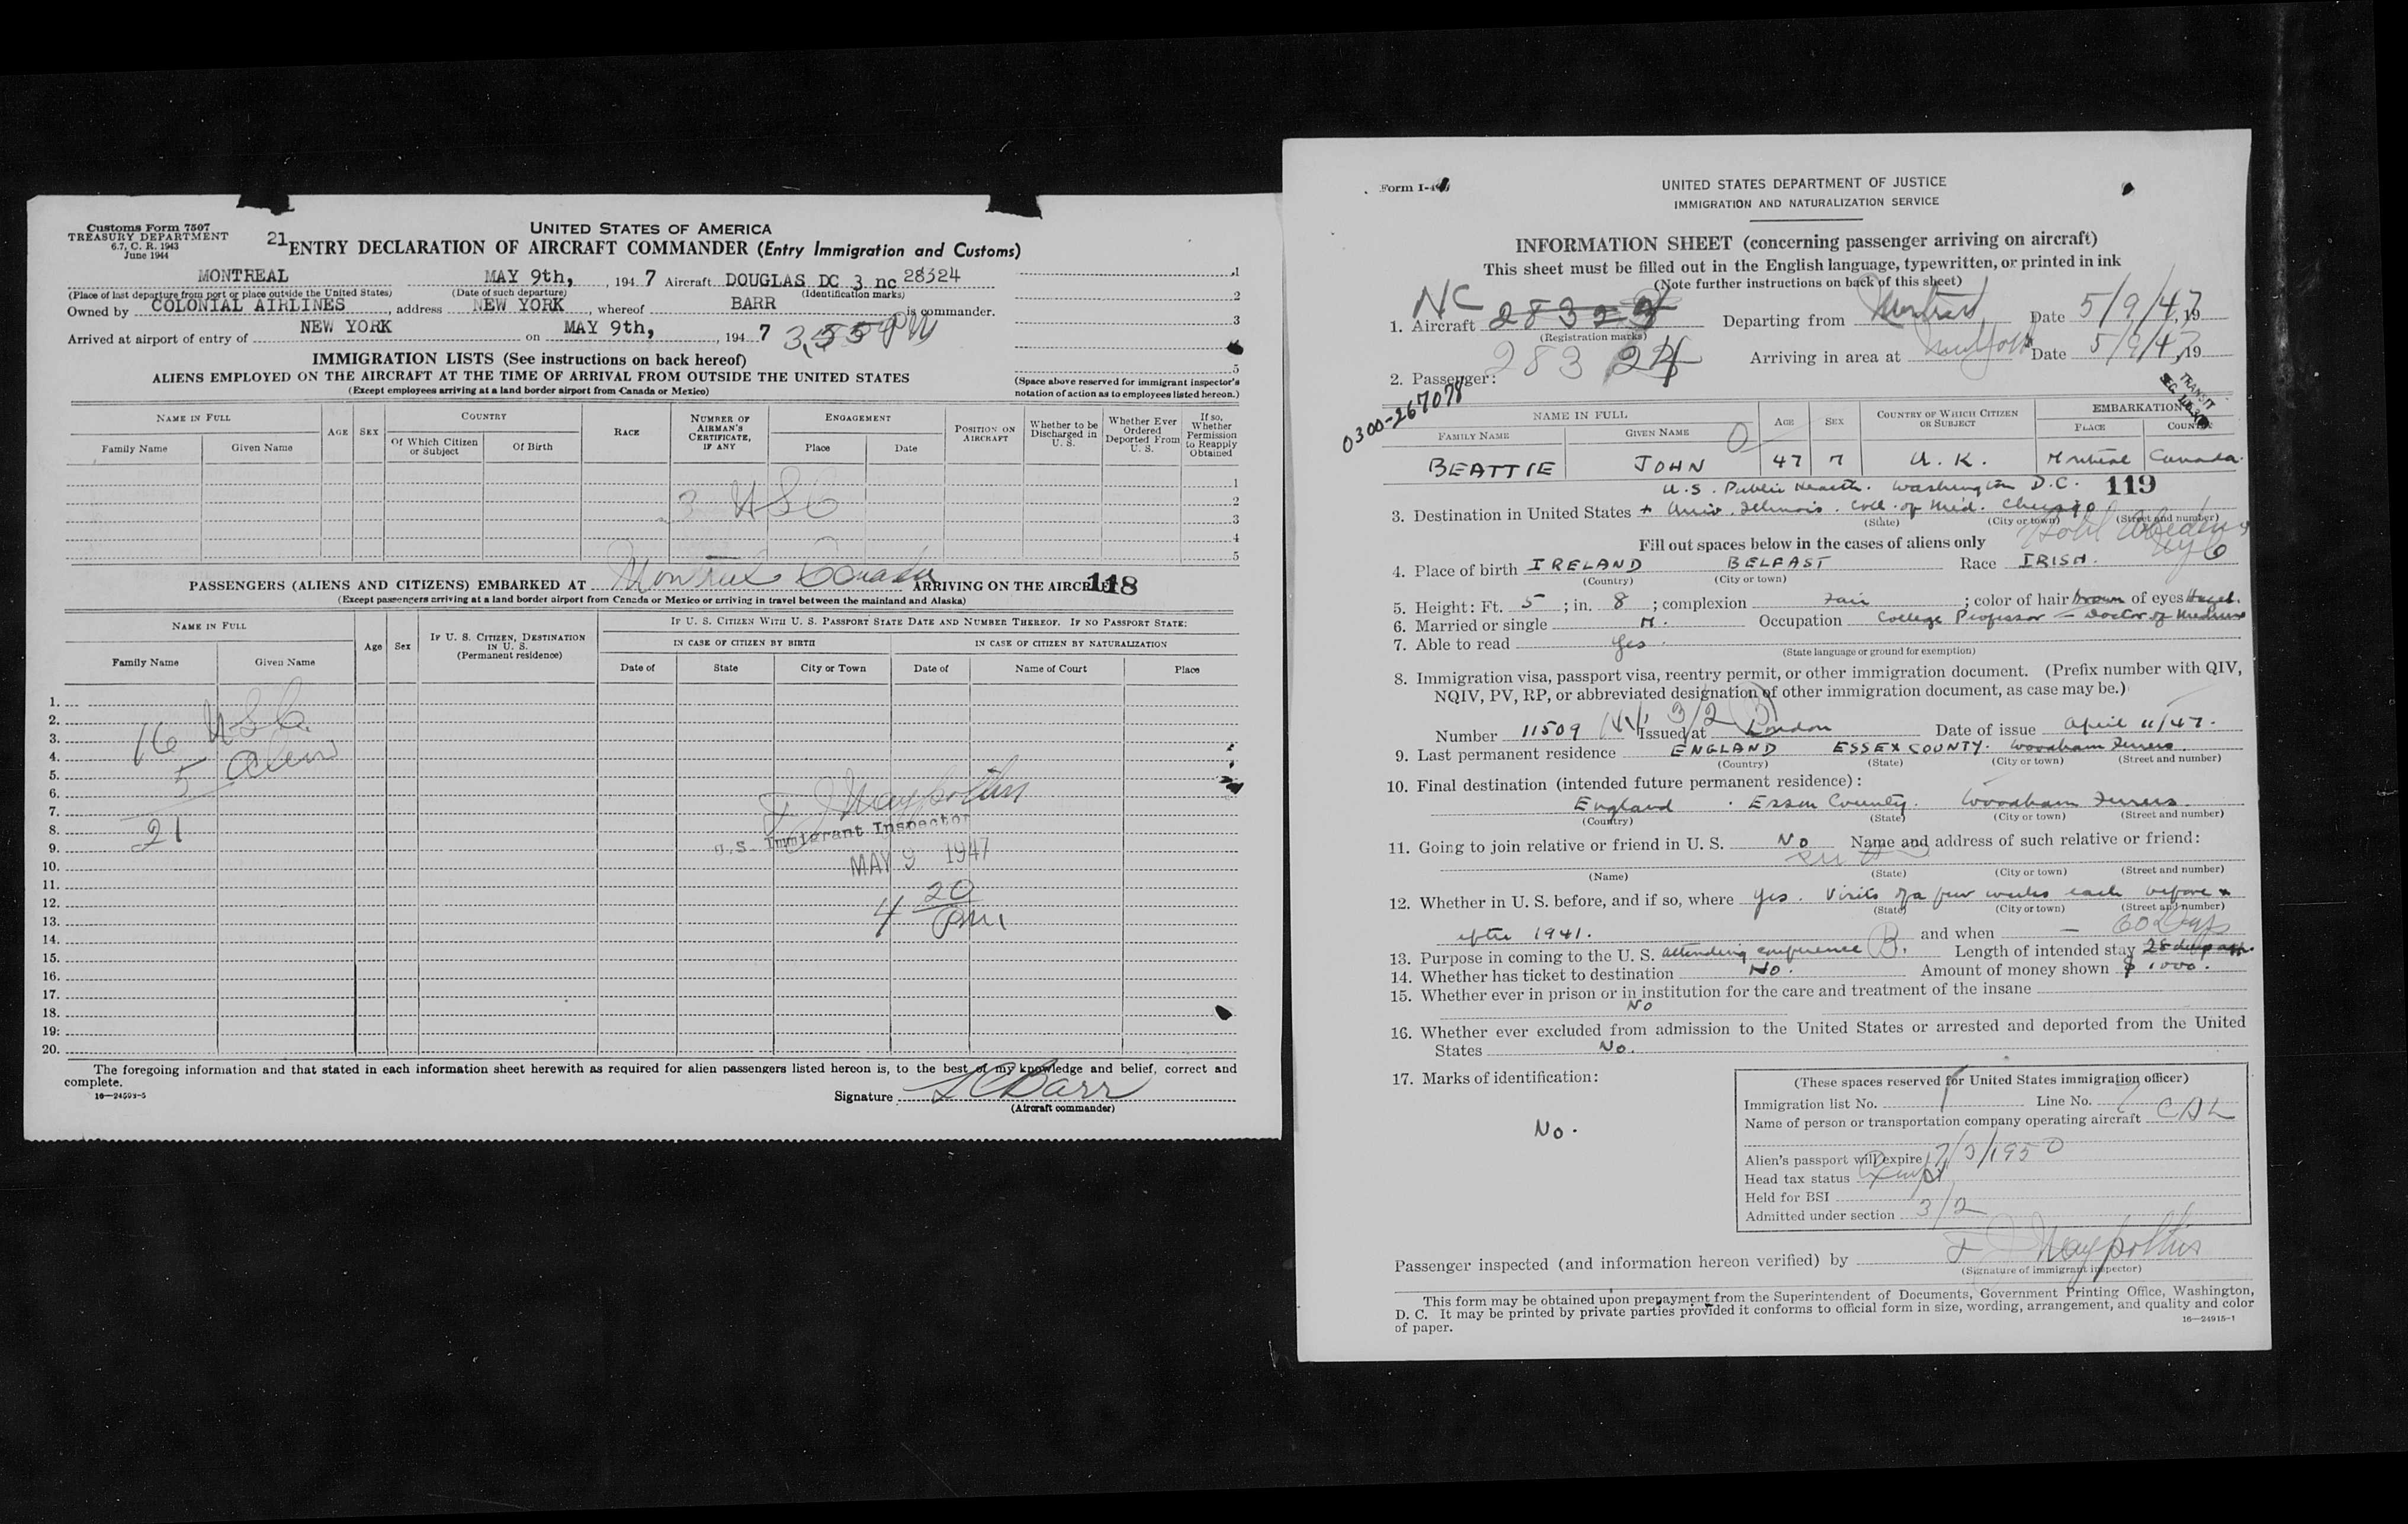 Customs Form 7507
TREASURY DEPARTMENT
6.7, C. R. 1943
June 1944
UNITED STATES OF AMERICA
21 ENTRY DECLARATION OF AIRCRAFT COMMANDER (Entry Immigration and Customs)
MONTREAL MAY 9th, , 194 7 Aircraft DOUGLAS DC 3 nc 28324
(Place of last departure from port or place outside the United States) (Date of such departure) (Identification marks)
Owned by COLONIAL AIRLINES , address NEW YORK , whereof BARR is commander.
Arrived at airport of entry of NEW YORK on MAY 9th, , 194 7
1
2
3
5
IMMIGRATION LISTS (See instructions on back hereof)
ALIENS EMPLOYED ON THE AIRCRAFT AT THE TIME OF ARRIVAL FROM OUTSIDE THE UNITED STATES
(Except employees arriving at a land border airport from Canada or Mexico)
(Space above reserved for immigrant inspector's notation of action as to employees listed hereon.)
NAME IN FULL
Family Name Given Name
AGE SEX
COUNTRY
Of Which Citizen or Subject Of Birth
RACE
NUMBER OF AIRMAN'S CERTIFICATE, IF ANY
ENGAGEMENT
Place Date
POSITION ON AIRCRAFT
Whether to be Discharged in U. S.
Whether Ever Ordered Deported From U. S.
If so, Whether Permission to Reapply Obtained
1
2
3
4
5
3 USC
PASSENGERS (ALIENS AND CITIZENS) EMBARKED AT Montreal Canada ARRIVING ON THE AIRCRAFT
118
(Except passengers arriving at a land border airport from Canada or Mexico or arriving in travel between the mainland and Alaska)
NAME IN FULL
Family Name Given Name
Age Sex
IF U. S. CITIZEN, DESTINATION IN U. S.
(Permanent residence)
IF U. S. CITIZEN WITH U. S. PASSPORT STATE DATE AND NUMBER THEREOF. IF NO PASSPORT STATE:
IN CASE OF CITIZEN BY BIRTH IN CASE OF CITIZEN BY NATURALIZATION
Date of State City or Town Date of Name of Court Place
1.
2.
3.
4.
5.
6.
7.
8.
9.
10.
11.
12.
13.
14.
15.
16.
17.
18.
19.
20.
16 USC
5 Alien
21
U.S. Immigrant Inspector
MAY 9 1947
4 20 pm
The foregoing information and that stated in each information sheet herewith as required for alien passengers listed hereon is, to the best of my knowledge and belief, correct and
complete.
16—24593-5
Signature L C Barr
(Aircraft commander)
Form I-
UNITED STATES DEPARTMENT OF JUSTICE
IMMIGRATION AND NATURALIZATION SERVICE
INFORMATION SHEET (concerning passenger arriving on aircraft)
This sheet must be filled out in the English language, typewritten, or printed in ink
(Note further instructions on back of this sheet)
1. Aircraft NC 28324 Departing from Montreal Date 5/9/47, 19
(Registration marks)
28324
Arriving in area at New York Date 5/9/47, 19
2. Passenger:
0300-267078
TRANSIT
NAME IN FULL
FAMILY NAME GIVEN NAME AGE SEX COUNTRY OF WHICH CITIZEN OR SUBJECT
EMBARKATION
PLACE COUNTRY
BEATTIE JOHN 47 M U. K. Montreal Canada
U.S. Public Health. Washington D.C. 119
3. Destination in United States + Univ. Illinois. Coll. of Med. Chicago
(State) (City or town) (Street and number)
Fill out spaces below in the cases of aliens only
4. Place of birth IRELAND BELFAST Race IRISH.
(Country) (City or town)
5. Height: Ft. 5 ; in. 8 ; complexion Fair ; color of hair brown of eyes Hazel.
6. Married or single M. Occupation College Professor — Doctor of Medicine
7. Able to read Yes.
(State language or ground for exemption)
8. Immigration visa, passport visa, reentry permit, or other immigration document. (Prefix number with QIV,
NQIV, PV, RP, or abbreviated designation of other immigration document, as case may be.)
3/2 (B)
Number 11509 Issued at London Date of issue April 11/47.
9. Last permanent residence ENGLAND ESSEX COUNTY. Woodham Ferrers.
(Country) (State) (City or town) (Street and number)
10. Final destination (intended future permanent residence):
England . Essex County. Woodham Ferrers.
(Country) (State) (City or town) (Street and number)
11. Going to join relative or friend in U. S. No Name and address of such relative or friend:
(Name) (State) (City or town) (Street and number)
12. Whether in U. S. before, and if so, where Yes. Visits of a few weeks each before &
(State) (City or town) (Street and number)
after 1941. and when —
60 Days
13. Purpose in coming to the U. S. attending conference B. Length of intended stay 28 days
14. Whether has ticket to destination No. Amount of money shown $ 1000.
15. Whether ever in prison or in institution for the care and treatment of the insane
No
16. Whether ever excluded from admission to the United States or arrested and deported from the United
States No.
17. Marks of identification:
No.
(These spaces reserved for United States immigration officer)
Immigration list No. 1 Line No.
Name of person or transportation company operating aircraft CAL
Alien's passport will expire 17/3/1950
Head tax status Exempt
Held for BSI
Admitted under section 3/2
Passenger inspected (and information hereon verified) by
(Signature of immigrant inspector)
This form may be obtained upon prepayment from the Superintendent of Documents, Government Printing Office, Washington,
D. C. It may be printed by private parties provided it conforms to official form in size, wording, arrangement, and quality and color
of paper.
16—24915-1